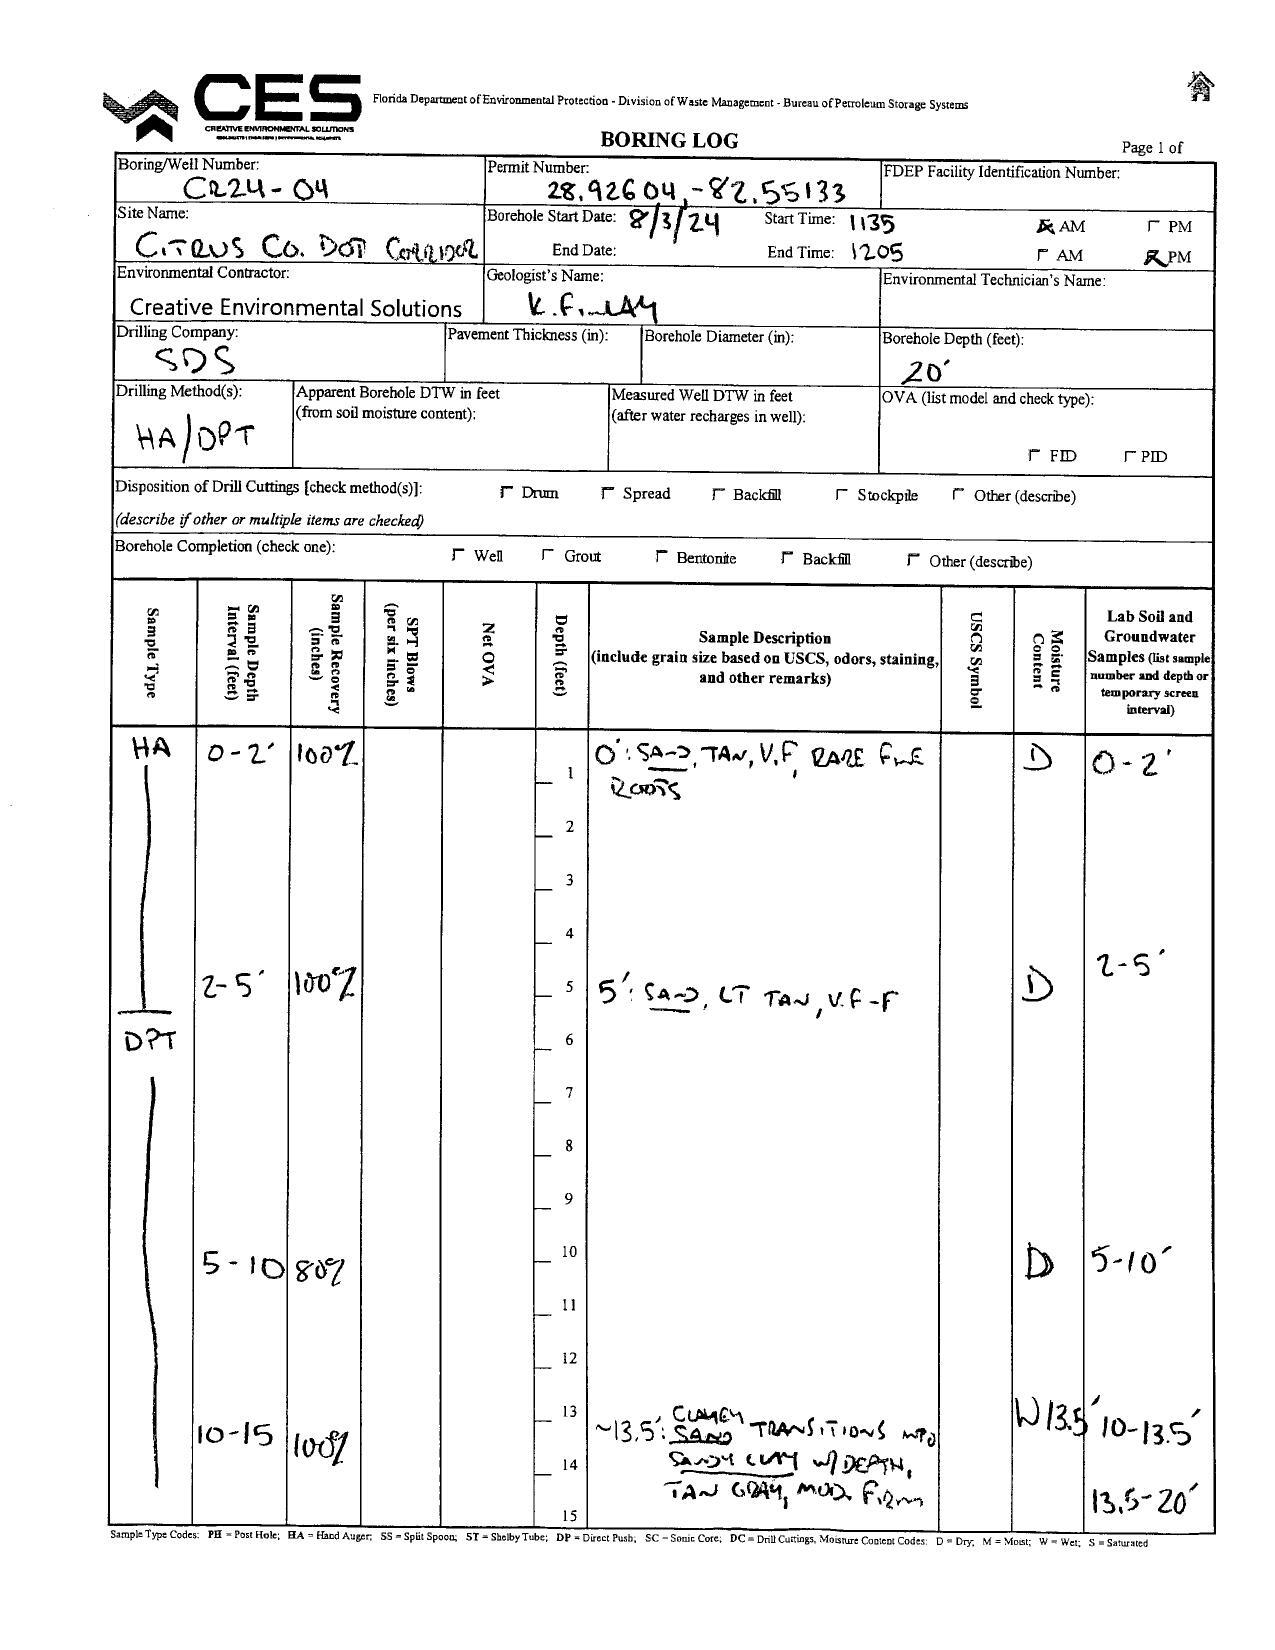 CES
CREATIVE ENVIRONMENTAL SOLUTIONS
Florida Department of Environmental Protection - Division of Waste Management - Bureau of Petroleum Storage Systems
BORING LOG
Page 1 of
Boring/Well Number:
CR24-04
Permit Number:
28.92604,-82.55133
FDEP Facility Identification Number:
Site Name:
CITRUS CO. DOT CORRIDOR
Borehole Start Date: 8/3/24
Start Time: 1135
AM
PM
End Date:
End Time: 1205
AM
PM
Environmental Contractor:
Creative Environmental Solutions
Geologist's Name:
K. FINLAY
Environmental Technician's Name:
Drilling Company:
SDS
Pavement Thickness (in):
Borehole Diameter (in):
Borehole Depth (feet):
20'
Drilling Method(s):
HA/DPT
Apparent Borehole DTW in feet
(from soil moisture content):
Measured Well DTW in feet
(after water recharges in well):
OVA (list model and check type):
FID
PID
Disposition of Drill Cuttings [check method(s)]:
Drum
Spread
Backfill
Stockpile
Other (describe)
(describe if other or multiple items are checked)
Borehole Completion (check one):
Well
Grout
Bentonite
Backfill
Other (describe)
Sample Type
Sample Depth
Interval (feet)
Sample Recovery
(inches)
SPT Blows
(per six inches)
Net OVA
Depth (feet)
Sample Description
(include grain size based on USCS, odors, staining,
and other remarks)
USCS Symbol
Moisture
Content
Lab Soil and
Groundwater
Samples (list sample
number and depth or
temporary screen
interval)
HA
0-2'
100%
0': SAND, TAN, V.F, RARE FINE
ROOTS
D
0-2'
1
2
3
4
2-5'
2-5'
100%
5
5': SAND, LT TAN, V.F-F
D
DPT
6
7
8
9
5-10
80%
10
D
5-10'
11
12
13
10-15
100%
~13.5': CLAYEY
SAND TRANSITIONS INTO
SANDY CLAY W/ DEPTH,
TAN GRAY, MOD. FIRM
W 13.5'
10-13.5'
14
13.5-20'
15
Sample Type Codes: PH = Post Hole; HA = Hand Auger; SS = Split Spoon; ST = Shelby Tube; DP = Direct Push; SC = Sonic Core; DC = Drill Cuttings, Moisture Content Codes: D = Dry; M = Moist; W = Wet; S = Saturated